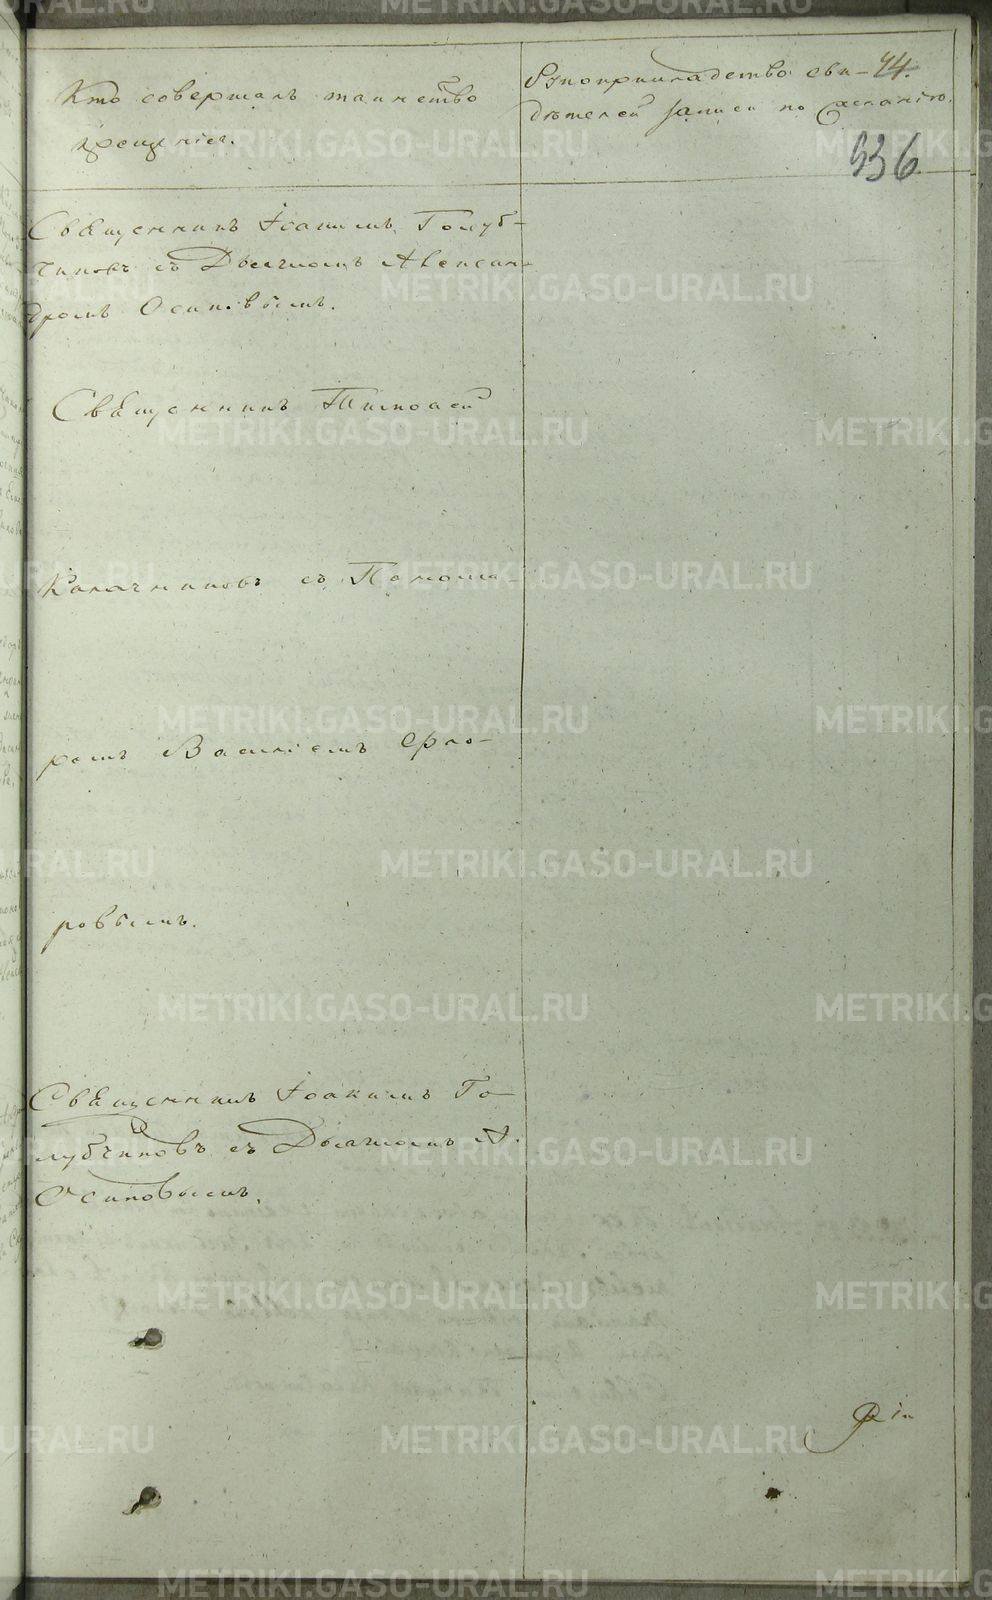 Кто совершалъ таинство
крещенія.
Рукоприкладство сви-
дѣтелей записи по желанію.
44.
536
Священникъ Іоакимъ Голуб-
чиковъ съ Дьячкомъ Алексан-
дромъ Осиповымъ.
Священникъ Тимофей
Калачниковъ съ Понома-
ремъ Василіемъ Фло-
ровымъ.
Священникъ Іоакимъ Го-
лубчиковъ съ Дьячкомъ А.
Осиповымъ.
METRIKI.GASO-URAL.RU